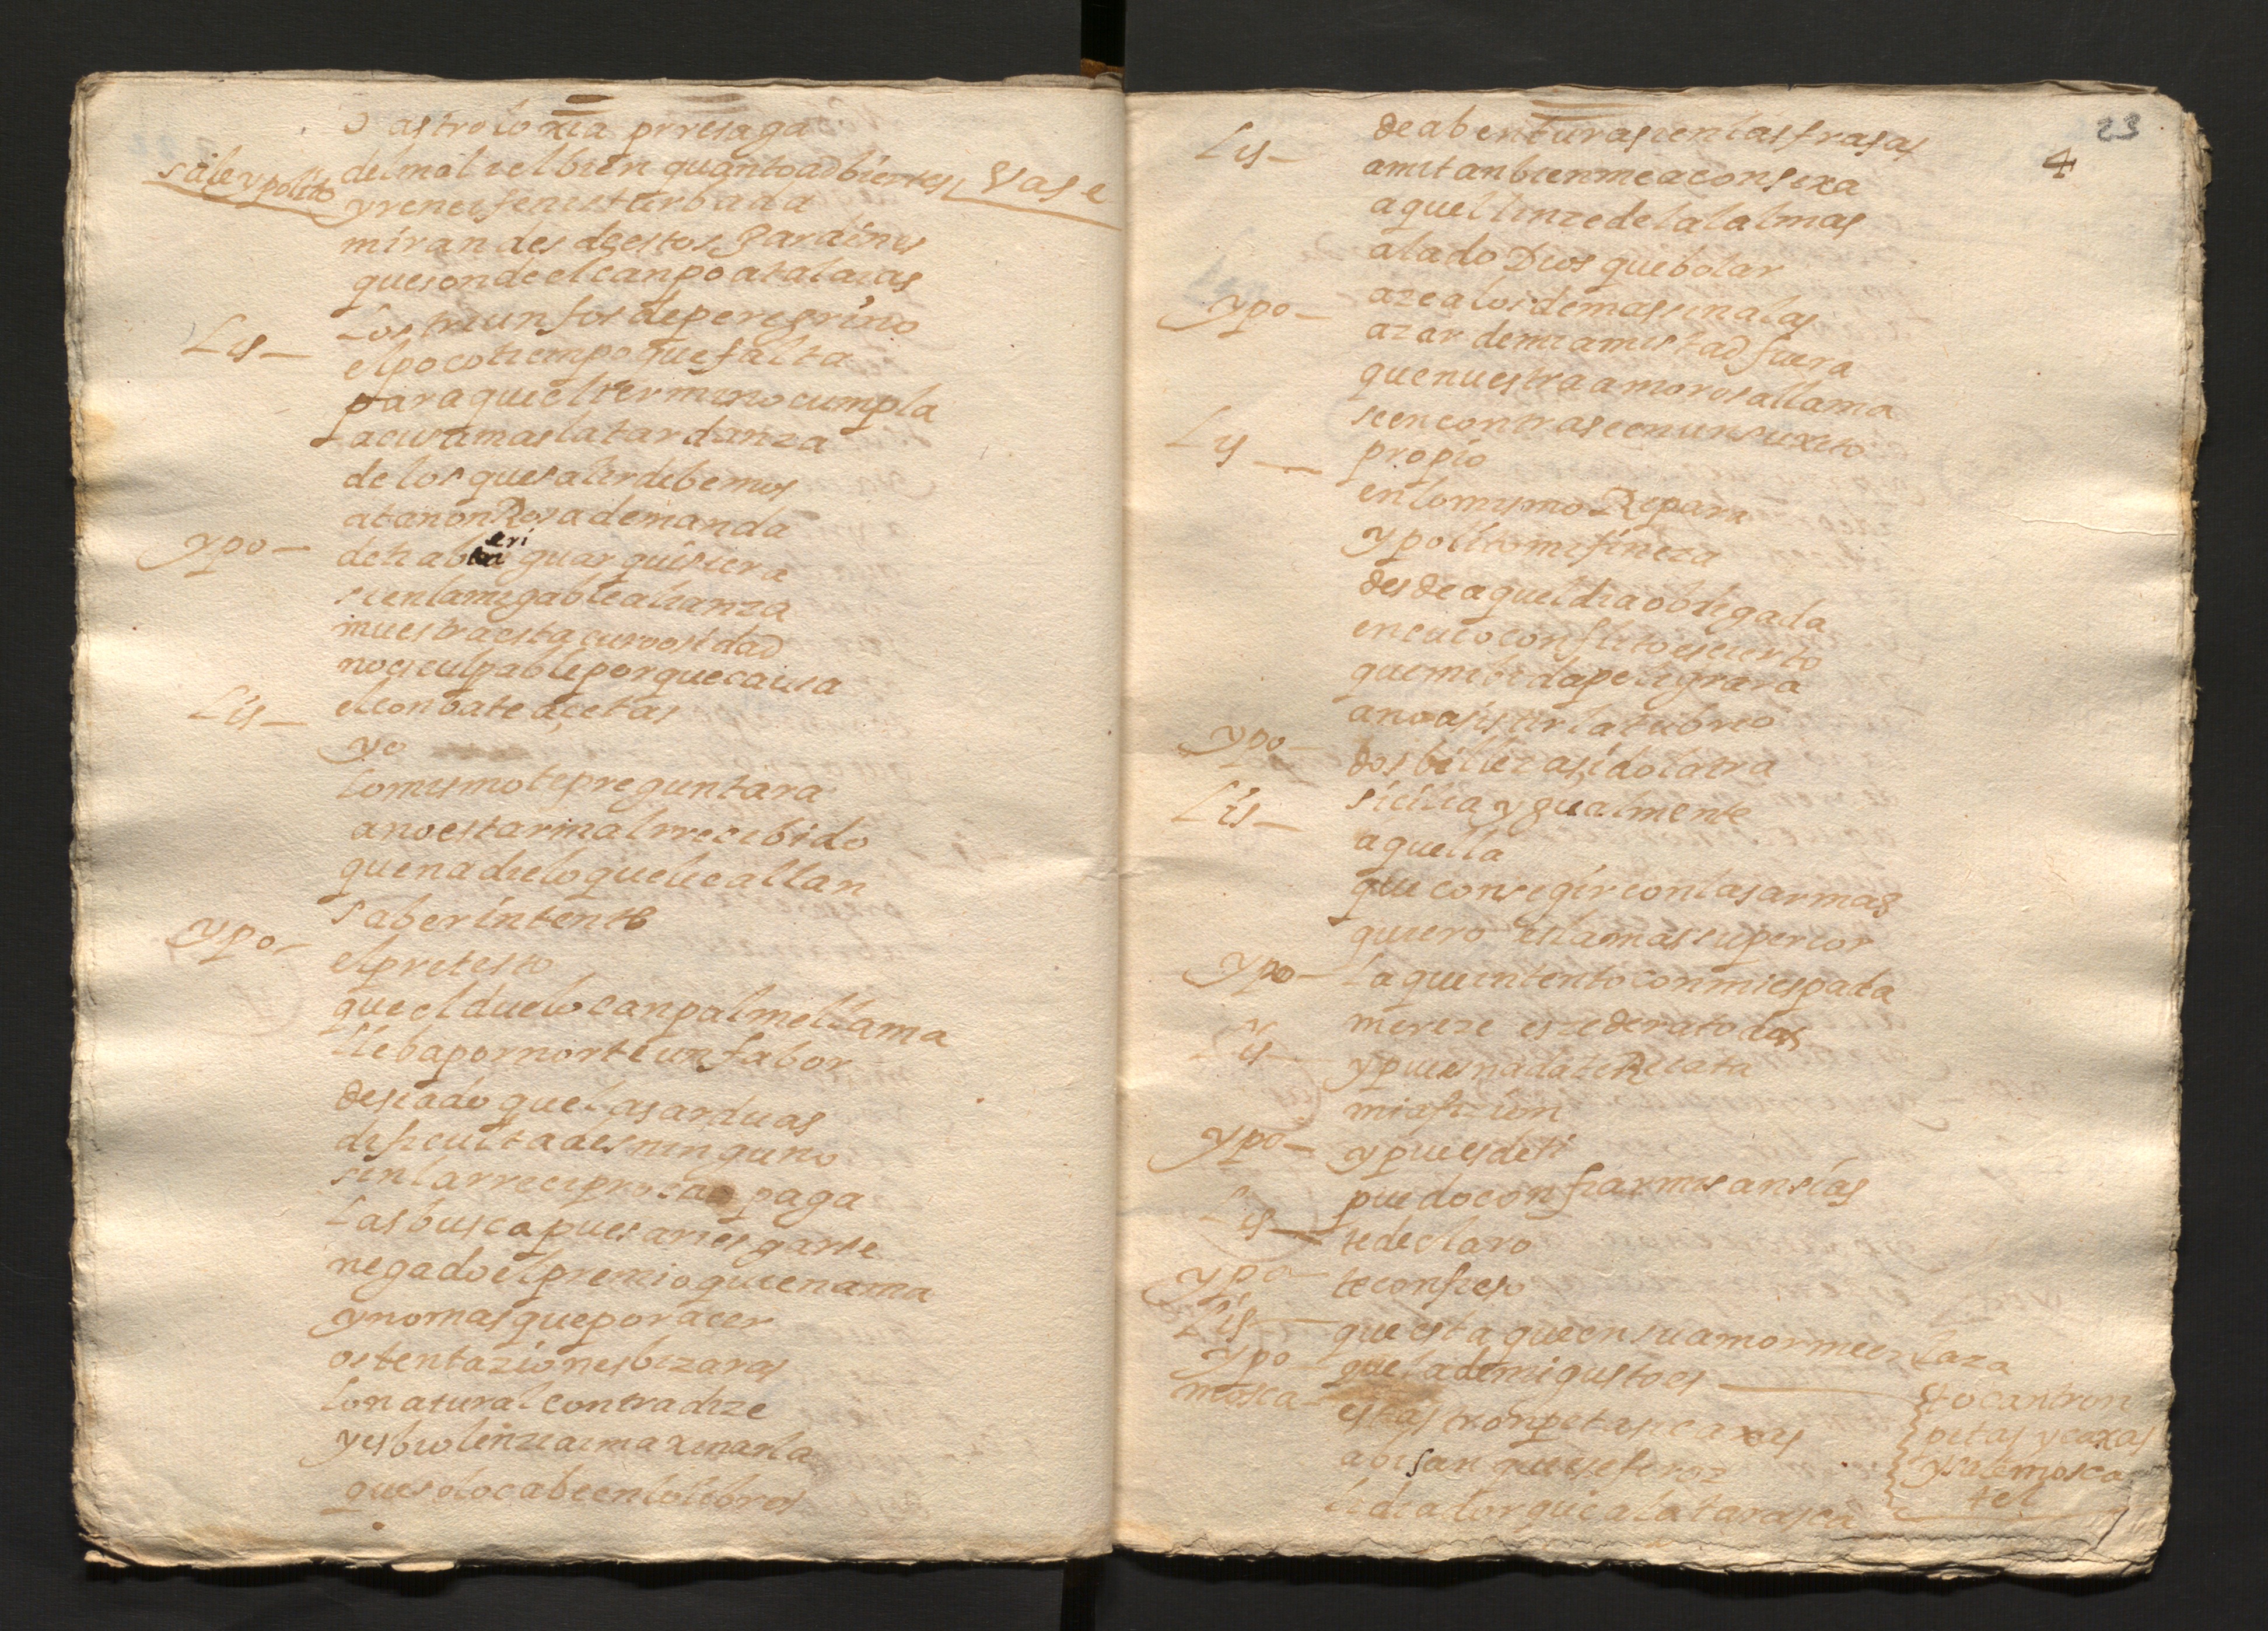 o astroloxia prresaga
del mal i el bien quanto adbiertes Vase
sale ypolito
y renei fenis turbada
miran des destos Jardines
que son de el canpo atalaias
Los triunfos de peregrino
Lis— el poco tiempo que falta
para que el termino cumpla
acusa mas la tardanza
de los que salir debemos
a tan onRosa demanda
ypo— de ti aberiguar quisiera
si en la migable alianza
muestra esta curiosidad
no es culpable porque causa
el conbate acetas
Lis— yo
lo mismo te preguntara
a no estar mal rrecibido
que nadie lo que le callan
saber intente
ypo— el pretesto
que el duelo canpal me llama
lleba por norte un fabor
desiado que las arduas
dificultades ninguno
sin la rreciproca paga
Las busca pues ariesgarse
negado el premio quien ama
y no mas que por acer
ostentaziones bizaras
lo natural contradize
y es biolenzia imaxinarla
que solo cabe en lo libros
23
4
de abenturas i en las frasas
Lis— a mi tanbien me aconsexa
aquel linze de la almas
alado Dios que bolar
aze a los demas sin alas
ypo— azar de mi amistad fuera
que nuestra amorosa llama
se encontrase en un suxeto
propio
Lis— en lo mismo Repara
ypolito mi fineza
desde aquel dia obligada
en cuio conflito es cierto
que mi bida peligrara
a no asistirla tu brio
ypo— dos bellezas idolatra
sicilia ygualmente
Lis— aquella
que consegir con las armas
quiero es la mas superior
ypo— La que intento con mi espada
mereze eszeder a todas
Lis— y pues nada te Recata
mi afizion
ypo— y pues de ti
puedo confiar mis ansias
Lis— te declaro
ypo— te confieso
Lis— que esta que en su amor me enlaza
ypo— que la de mi gusto es
tocan tron
petas y caxas
y sale mosca
tel
mosca— estas tronpetas i caxas
abisan que
lidia torque a la tarasca